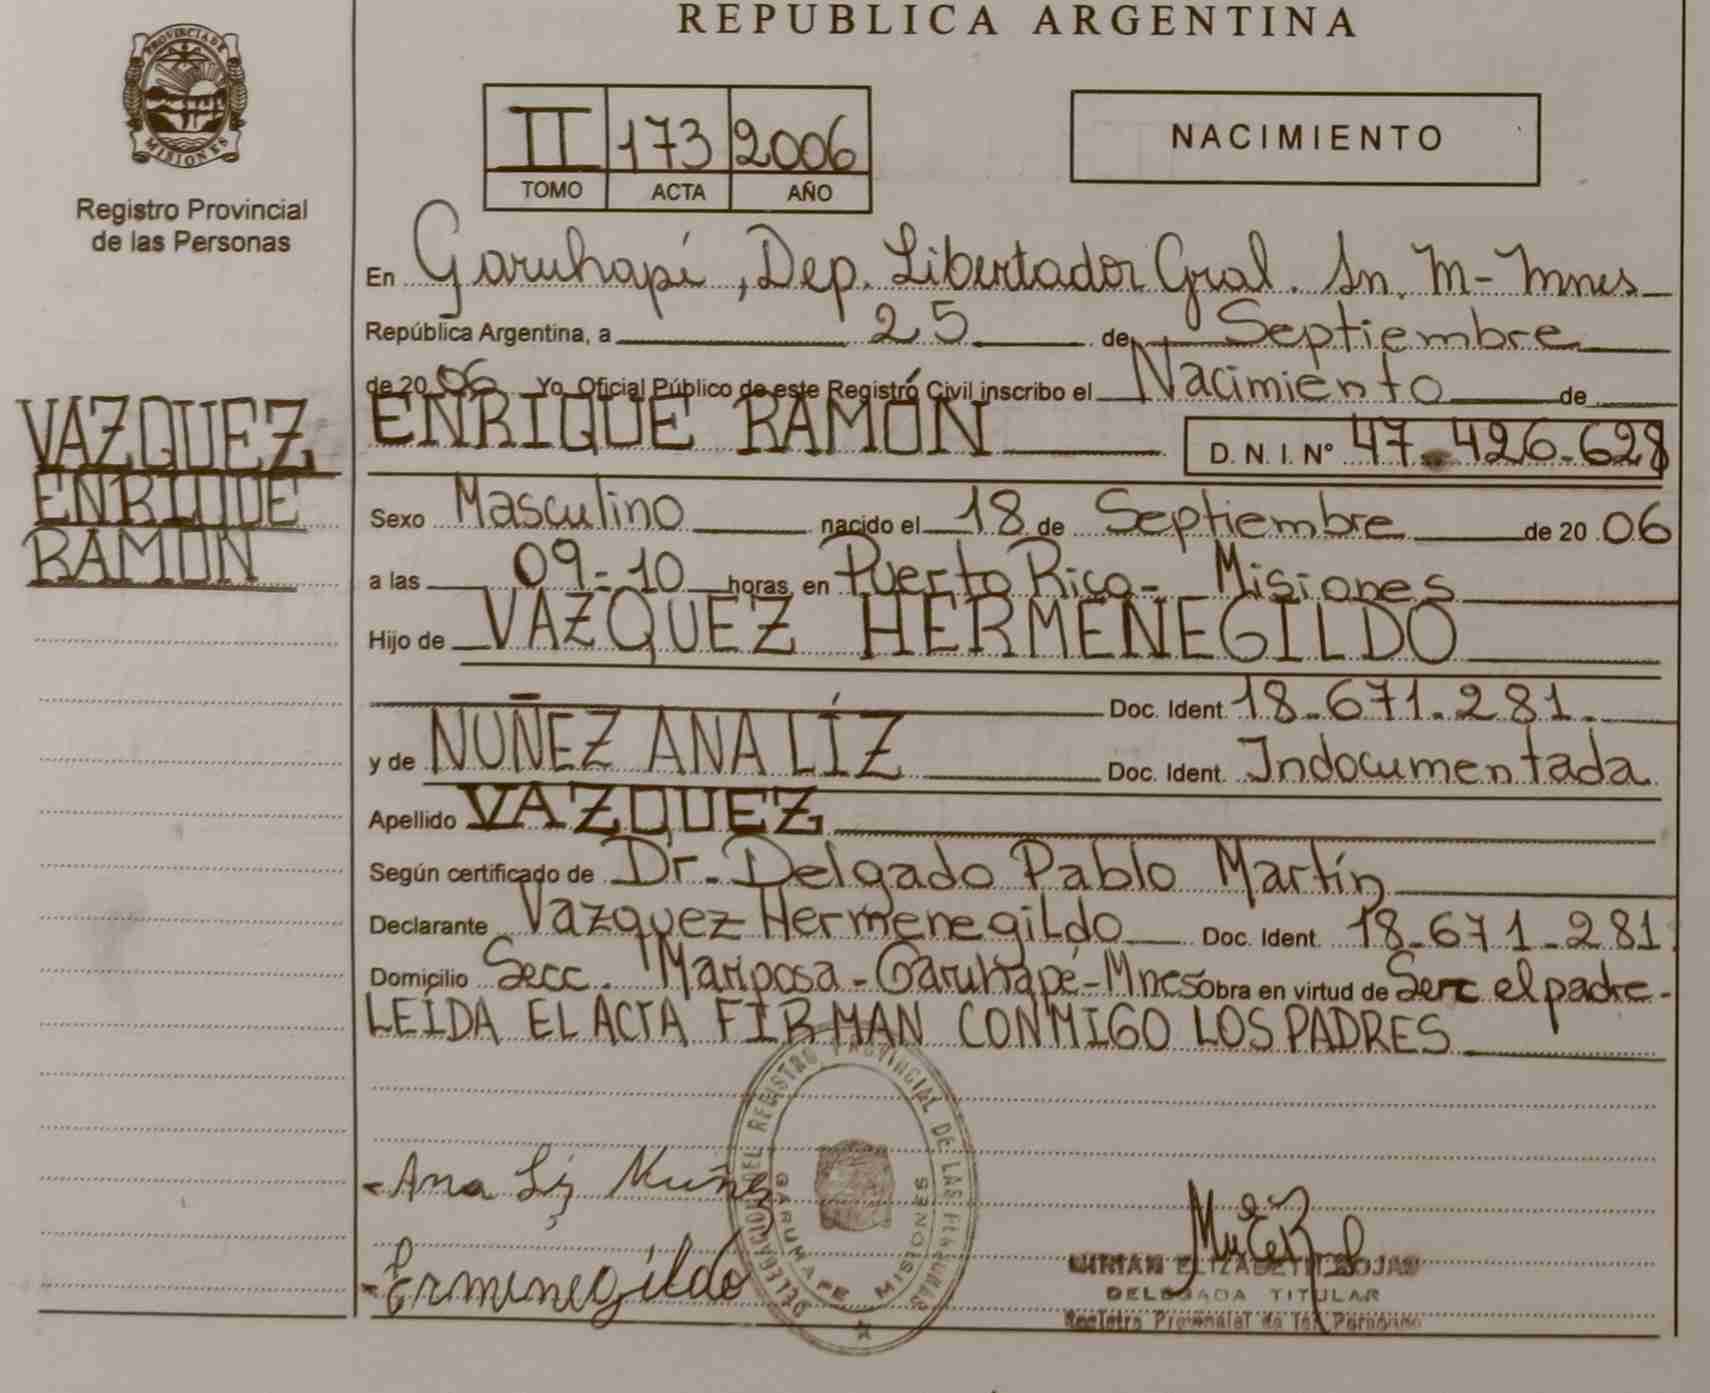 REPUBLICA ARGENTINA
PROVINCIA DE MISIONES
Registro Provincial
de las Personas
II 173 2006
TOMO ACTA AÑO
NACIMIENTO
En Garuhapé, Dep. Libertador Gral. Sn. M- Mnes
República Argentina, a 25 de Septiembre
de 2006 Yo Oficial Público de este Registro Civil inscribo el Nacimiento de
ENRIQUE RAMÓN D. N. I. Nº 47.426.628
VAZQUEZ
ENRIQUE
RAMÓN
Sexo Masculino nacido el 18 de Septiembre de 2006
a las 09-10 horas, en Puerto Rico- Misiones
Hijo de VAZQUEZ HERMENEGILDO
Doc. Ident. 18.671.281.
y de NUÑEZ ANA LÍZ Doc. Ident. Indocumentada
Apellido VAZQUEZ
Según certificado de Dr. Delgado Pablo Martín
Declarante Vazquez Hermenegildo Doc. Ident. 18.671.281
Domicilio Secc. Mariposa - Garuhapé - Mnes Obra en virtud de Ser el padre -
LEÍDA EL ACTA FIRMAN CONMIGO LOS PADRES
DELEGACION DEL REGISTRO PROVINCIAL DE LAS PERSONAS
GARUHAPE MISIONES
- Ana Liz Nuñez
- Ermenegildo
MIRIAN ELIZABETH ROJAS
DELEGADA TITULAR
Registro Provincial de las Personas